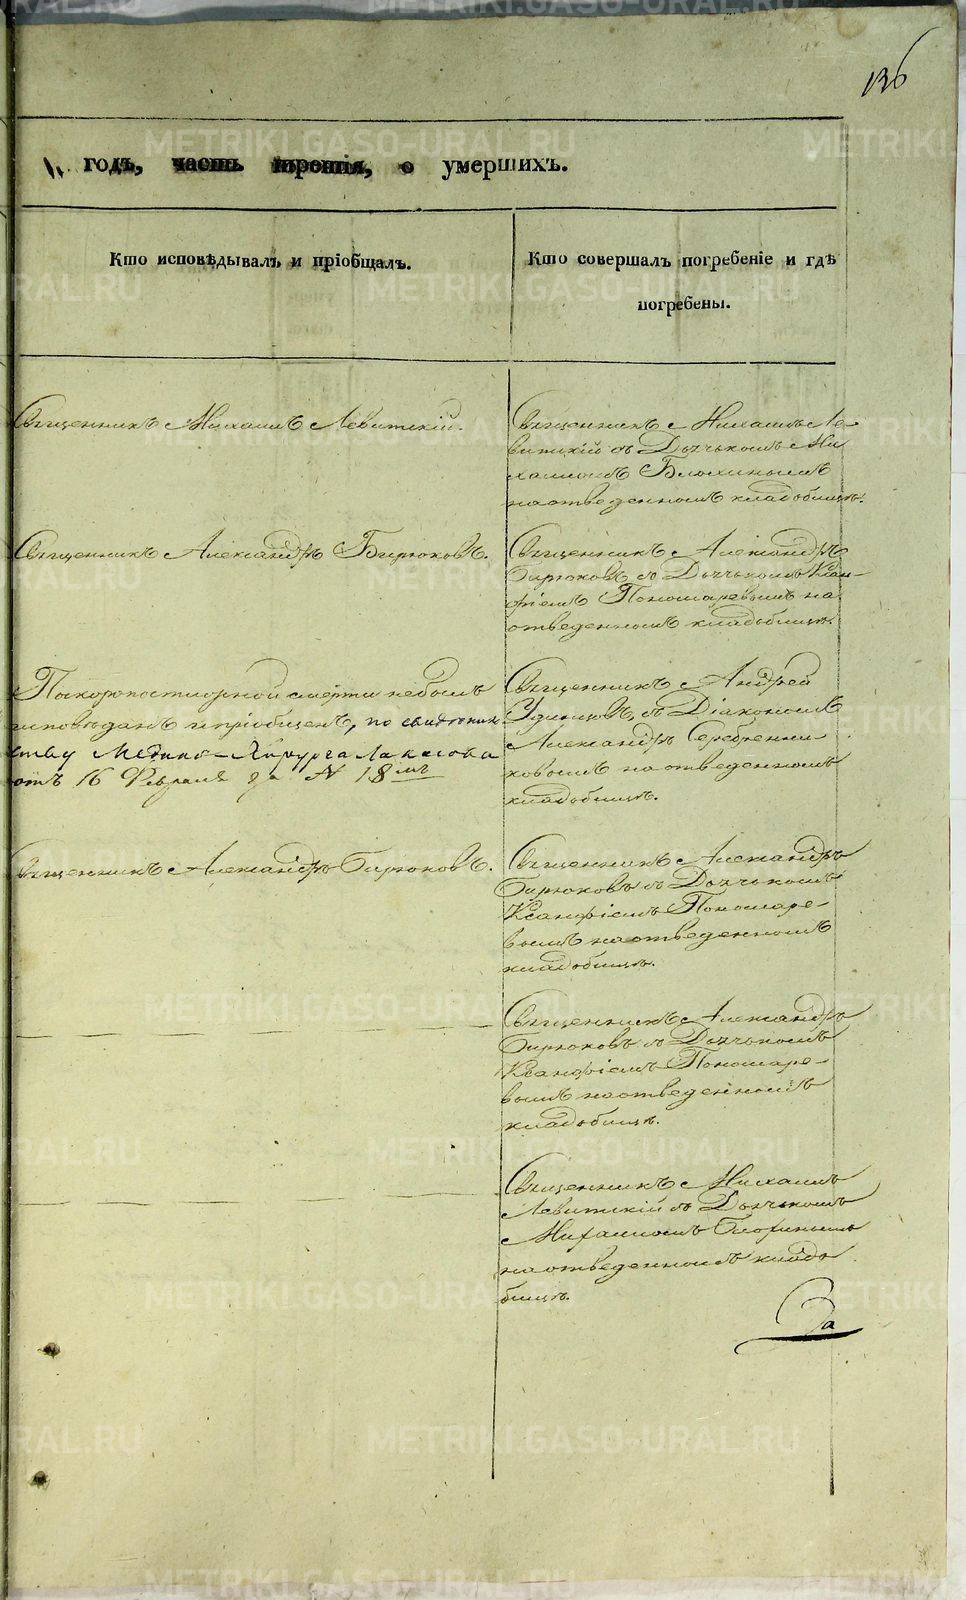 136
годъ, часть третія, о умершихъ.
Кто исповѣдывалъ и пріобщалъ.
Кто совершалъ погребеніе и гдѣ
погребены.
Священникъ Михаилъ Левитскій.
Священникъ Михаилъ Ле-
витскій съ Дьячькомъ Ми
хаиломъ Блохинымъ
на отведенномъ кладбищѣ.
Священникъ Александръ Бирюковъ.
Священникъ Александръ
Бирюковъ съ Дьячькомъ Ксан-
фіемъ Пономаревымъ на
отведенномъ кладбищѣ.
По скоропостижной смерти небылъ
исповѣданъ и пріобщенъ, по свидѣтель
ству Медико-Хирурга
отъ 16 Февраля за № 18мъ
Священникъ Андрей
Удинцовъ съ Діакономъ
Александромъ Серебренни
ковымъ на отведенномъ
кладбищѣ.
Священникъ Александръ Бирюковъ.
Священникъ Александръ
Бирюковъ съ Дьячькомъ
Ксанфіемъ Пономаре-
вымъ на отведенномъ
кладбищѣ.
Священникъ Александръ
Бирюковъ съ Дьячькомъ
Ксанфіемъ Пономаре-
вымъ на отведенномъ
кладбищѣ.
Священникъ Михаилъ
Левитскій съ Дьячькомъ
Михаиломъ Блохинымъ
на отведенномъ кладо
бищѣ.
За
METRIKI.GASO-URAL.RU